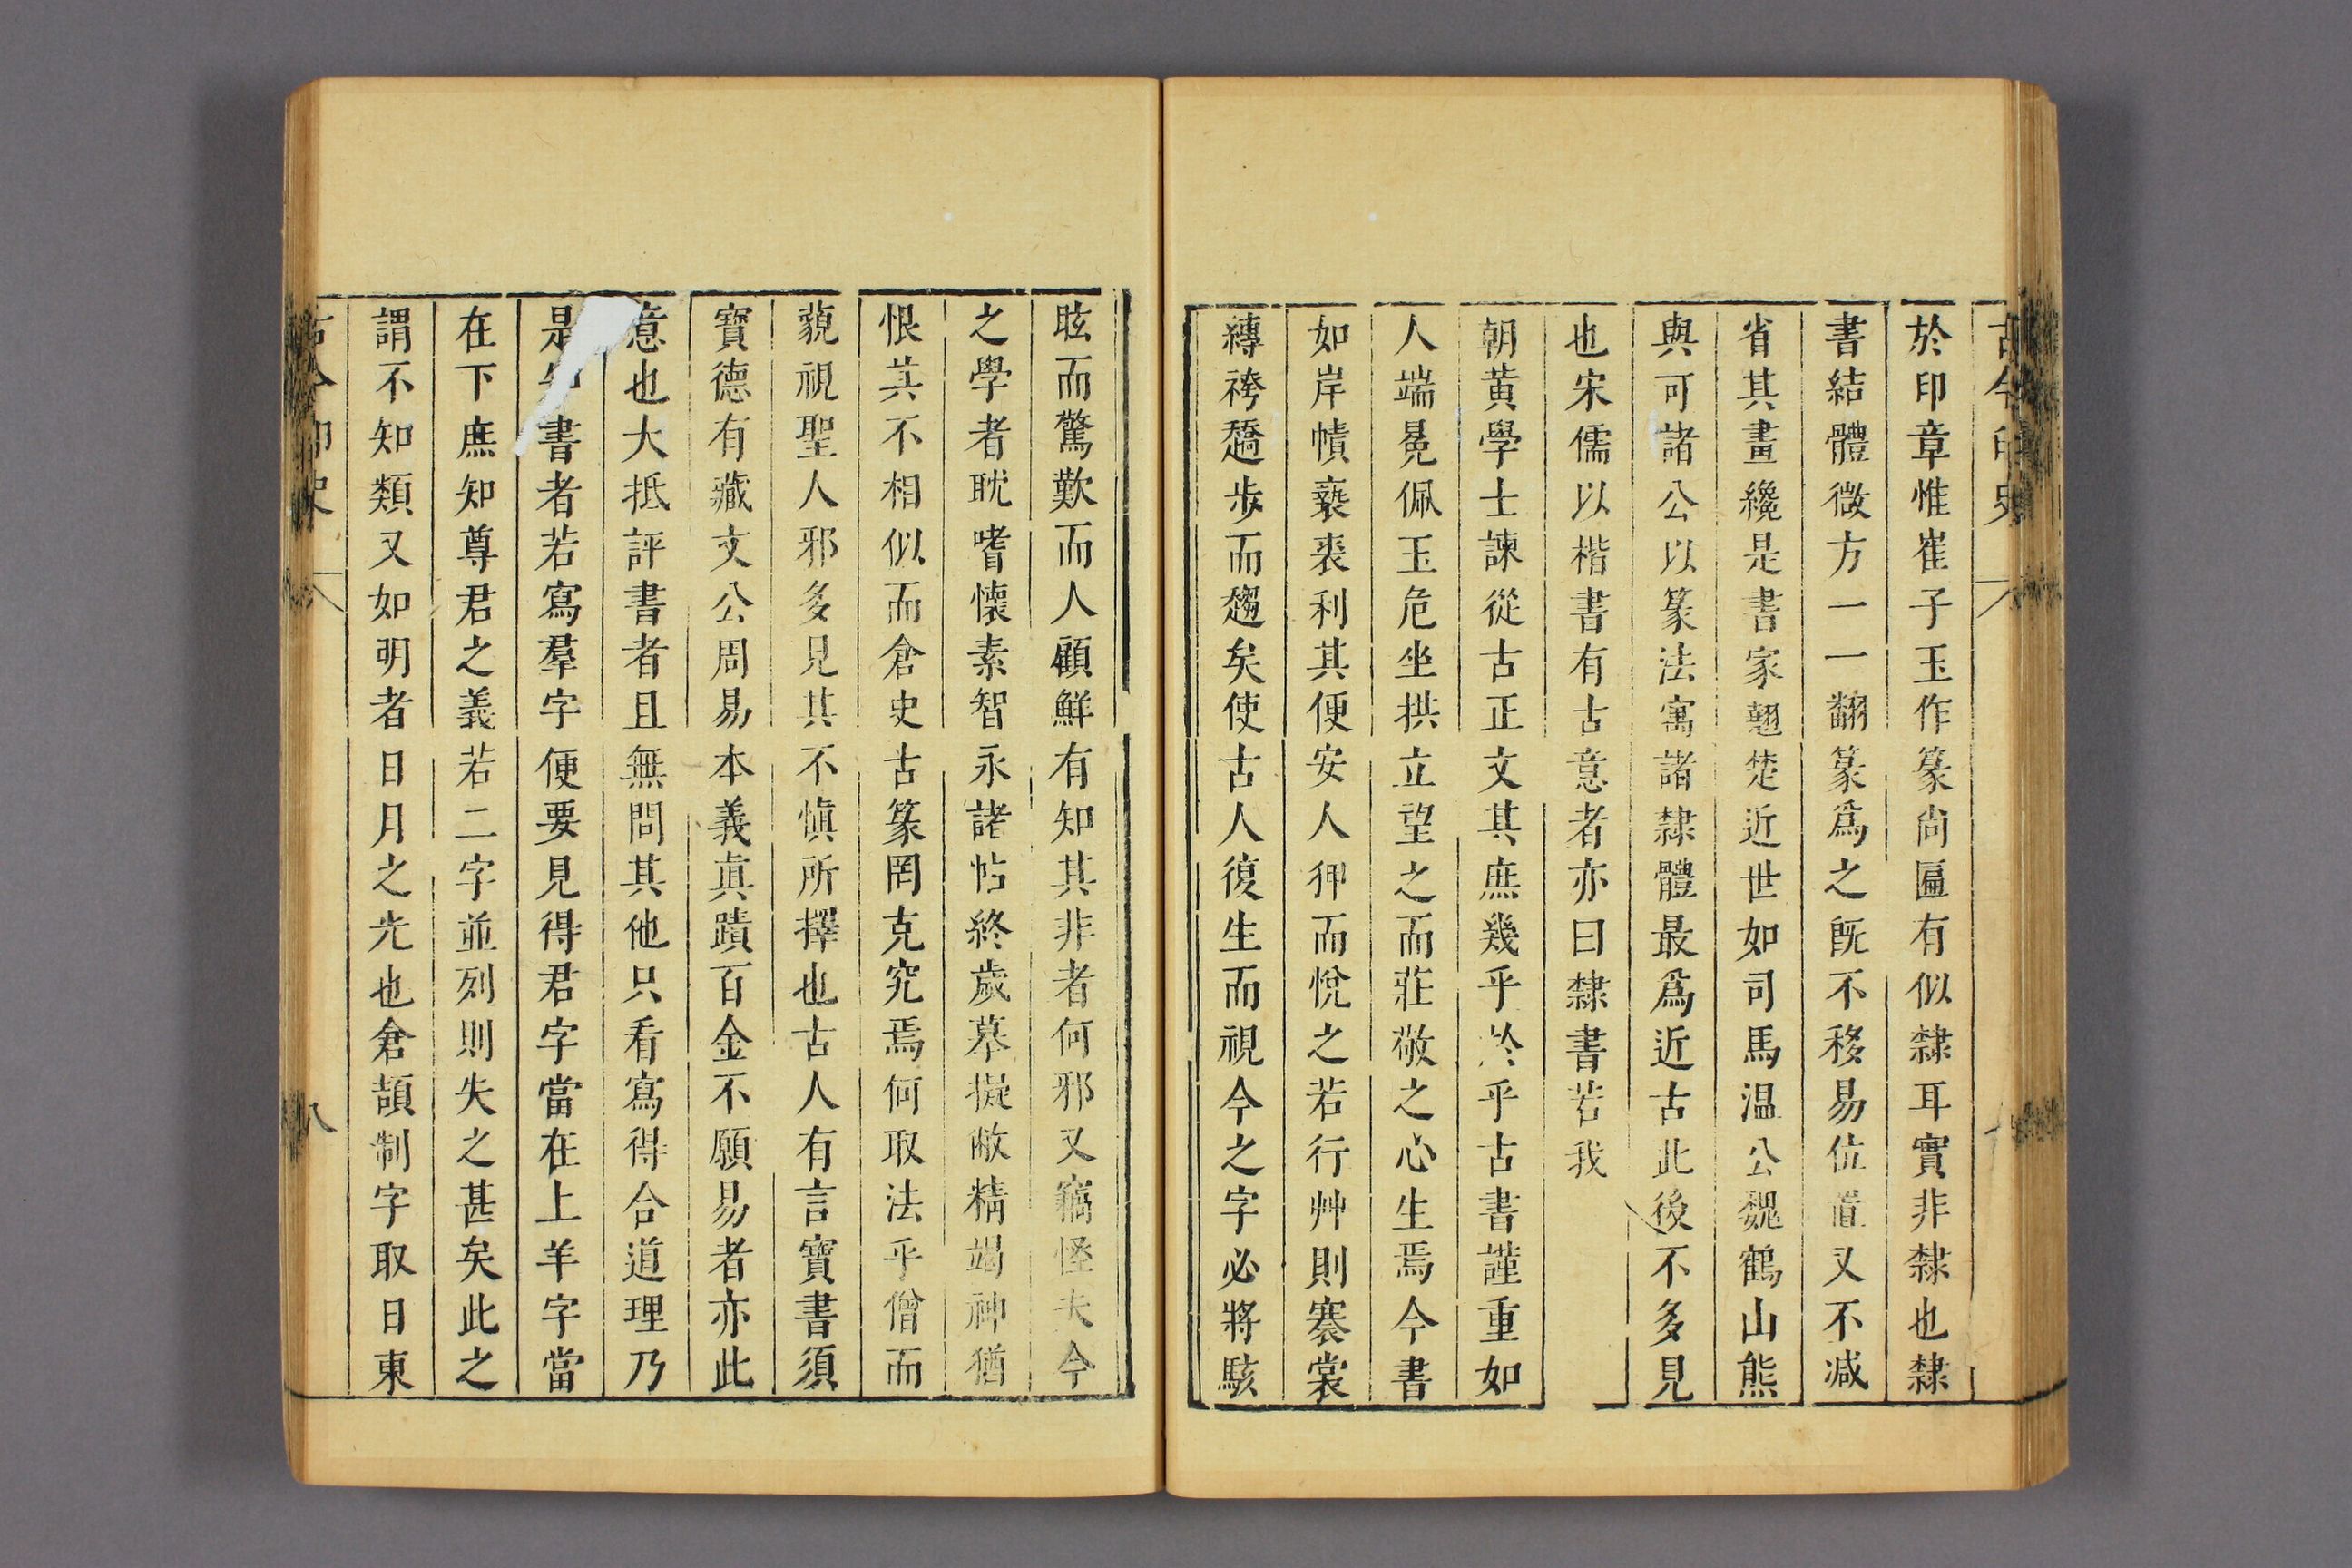 古今印史
於印章惟崔子玉作篆尚匾有似隸耳實非隸也隸
書結體微方一一翻篆爲之旣不移易位置又不減
省其畫纔是書家翹楚近世如司馬温公魏鶴山熊
與可諸公以篆法寓諸隸體最爲近古此後不多見
也宋儒以楷書有古意者亦曰隸書若我
朝黄學士諫從古正文其庶幾乎於乎古書謹重如
人端冕佩玉危坐拱立望之而莊敬之心生焉今書
如岸幘褻裘利其便安人狎而悅之若行艸則褰裳
縛袴趫步而趨矣使古人復生而視今之字必將駭
眩而驚歎而人顧鮮有知其非者何邪又竊怪夫今
之學者耽嗜懷素智永諸帖終歲摹擬敝精竭神猶
恨其不相似而倉史古篆罔克究焉何取法乎僧而
藐視聖人邪多見其不愼所擇也古人有言寶書須
寶德有藏文公周易本義真蹟百金不願易者亦此
意也大抵評書者且無問其他只看寫得合道理乃
是知書者若寫羣字便要見得君字當在上羊字當
在下庶知尊君之義若二字並列則失之甚矣此之
謂不知類又如明者日月之光也倉頡制字取日東
古今印史
八